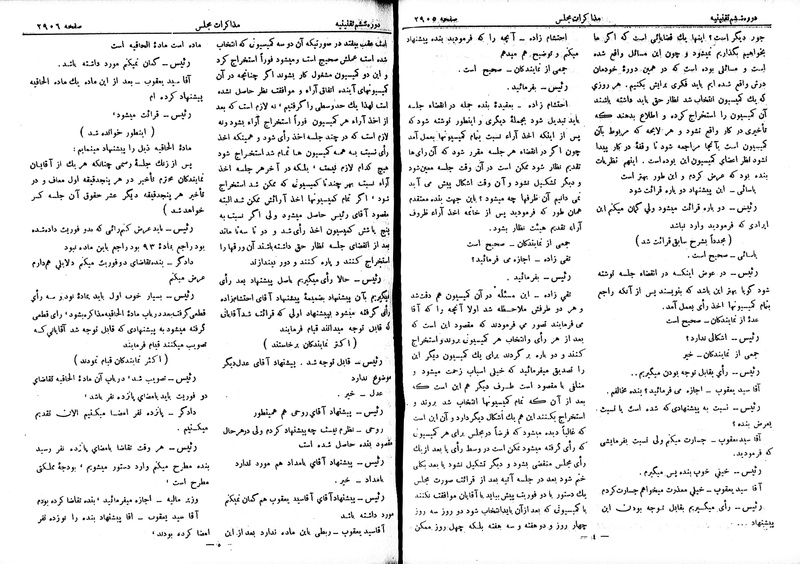 دوره ششم تقنینیه
مذاکرات مجلس
صفحه ۲۹۰۵
جور دیگر است؟ اینها یك قضایائی است که اگر ما
بخواهیم بگذاریم نمیشود و چون این مسائل واقع شده
است و مسائلی بوده است که در همین دورهٔ خودمان
درش واقع شده ایم باید فکری برایش بکنیم. هر روزی
که یك کمیسیون انتخاب شد نظار حق باید داشته باشند
آن کمیسیون را استخراج کرده و اطلاع بدهند که
تأخیری در کار واقع نشود و هر لایحه که مربوط بآن
کمیسیون است بآنجا مراجعه شود تا وقفهٔ در کار پیدا
نشود اعضای کمیسیون این بوده است. اینهم نظریات
بنده بود که عرض کردم و این طور بهتر است
یاسائی ـ این پیشنهاد دو باره قرائت شود
رئیس ـ دو باره قرائت میشود ولی گمان میکنم این
ایرادی که فرمودید وارد نباشد
( مجدداً بشرح سابق قرائت شد )
یاسائی ـ صحیح است.
رئیس ـ در عوض اینکه در انقضاء جلسه نوشته
شود گویا بهتر این باشد که بنویسند پس از آنکه راجع
بتمام کمیسیونها اخذ رأی بعمل آمد.
عدهٔ از نمایندگان ـ صحیح است
رئیس ـ اشکالی ندارد؟
جمعی از نمایندگان ـ خیر
رئیس ـ رأی بقابل توجه بودن میگیریم..
آقا سید یعقوب ـ اجازه می فرمائید؟ بنده مخالفم.
رئیس ـ نسبت به پیشنهادی که شده است یا نسبت
بعرض بنده؟
آقا سید یعقوب ـ جسارت میکنم ولی نسبت بفرمایشی
که فرمودید.
رئیس ـ خیلی خوب بنده پس میگیرم.
آقا سید یعقوب ـ خیلی معذرت میخواهم جسارت کردم
رئیس ـ رأی میگیریم بقابل توجه بودن این
پیشنهاد ...
احتشام زاده ـ آنچه را که فرمودید بنده پیشنهاد
میکنم و توضیح هم میدهم
جمعی از نمایندگان ـ صحیح است.
رئیس ـ بفرمائید.
احتشام زاده ـ بعقیدهٔ بنده جمله در انقضاء جلسه
باید تبدیل شود بجملهٔ دیگری و اینطور نوشته شود که
پس از اینکه اخذ آراء نسبت بتمام کمیسیونها بعمل آمد
چون اگر در انقضاء هر جلسه مقرر شود که آن رایها
تقدیم نظار شود ممکن است در آن وقت جلسه معین شود
و دیگر تشکیل نشود و آن وقت اشکال پیش می آید
نمی دانیم آن ظرفها چه میشود؟ باین جهت بنده معتقدم
همان طور که فرمودید پس از خاتمه اخذ آراء ظروف
آراء تقدیم هیئت نظار بشود.
جمعی از نمایندگان ـ صحیح است
تقی زاده ـ اجازه می فرمائید؟
رئیس ـ بفرمائید.
تقی زاده ـ این مسئله در آن کمیسیون هم دقت شد
و هر دو طرفش ملاحظه شد اولا آنچه را که آقا
می فرمایند تصور می فرمودند که مقصود این است که
بعد از هر رأی وانتخاب هر کمیسیونی بروند و استخراج
کنند و دو باره بر گردند برای یك کمیسیون دیگر این
را تصدیق میفرمائید که خیلی اسباب زحمت میشود و
منافی با مقصود است طرف دیگر هم این است که
بعد از آن که تمام کمیسیونها انتخاب شد بروند و
استخراج بکنند این هم یك اشکال دیگر دارد و آن این است
که غالباً دیده میشود که فرضاً در مجلس برای هر کمیسیون
که رأی گرفته میشود ممکن است در وسط رأی یا بعد از یك
رأی مجلس منقضی بشود و دیگر تشکیل نشود یا بعد بکلی
ختم شود بعد در جلسه آتیه بعد از قرائت صورت مجلس
یك دستور یا دو فوریت پیش بیاید یا آقایان موافقت نکنند
با کمیسیونی که بعد از آن باید انتخاب شود دو روز سه روز
چهار روز و دو هفته و سه هفته بلکه چهل روز ممکن
ـ ٤ ـ
دوره ششم تقنینیه
مذاکرات مجلس
صفحه ۲۹۰۶
است عقب بیفتد در صورتیکه آن دو سه کمیسیونی که انتخاب
شده است عملش صحیح است ومیشود فوراً استخراج کرد
و این دو کمیسیون مشغول کار بشوند اگر چنانچه در آن
کمیسیونهای آینده اتفاق آراء و موافقت نظر حاصل نشده
است لهذا یك حد وسطی را گرفتیم، نه لازم است که بعد
از اخذ آراء هر کمیسیون فوراً استخراج آراء بشود ونه
لازم است که در چند جلسه اخذ رأی شود و همینکه اخذ
رأی نسبت بهمه کمیسیون ها تمام شد استخراج شود
هیچ کدام لازم نیست، بلکه در آخر هر جلسه اخذ
آراء نسبت بهر چند تا کمیسیونی که ممکن شد استخراج
شود، اگر تمام کمیسیونها اخذ آرائش ممکن شد البته
مقصود آقای رئیس حاصل میشود ولی اگر نسبت به
پنج یا شش کمیسیون اخذ رأی شد و دو تا سه تا ماند
بعد از انقضای جلسه نظار حق داشته باشند آن ورقها را
استخراج کنند و پاره کنند و دور نیندازند
رئیس ـ حالا رأی میگیریم باصل پیشنهاد بعد رأی
میگیریم بآن پیشنهاد بضمیمهٔ پیشنهاد آقای احتشام زاده
رأی گرفته میشود پیشنهاد اولی که قرائت شد آقایانی
که قابل توجه میدانند قیام فرمایند
( اکثر نمایندگان برخاستند )
رئیس ـ قابل توجه شد. پیشنهاد آقای عدل دیگر
موضوع ندارد
عدل ـ خیر.
رئیس ـ پیشنهاد آقای روحی هم همینطور
روحی ـ نظرم نیست چه پیشنهاد کردم ولی در هر حال
مقصود بنده حاصل شده است
رئیس ـ پیشنهاد آقای بامداد هم مورد ندارد
بامداد ـ خیر.
رئیس ـ پیشنهاد آقای آقا سید یعقوب هم گمان نمیکنم
مورد داشته باشد
آقا سید یعقوب ـ ربطی باین ماده ندارد بعد از این
ماده است مادهٔ الحاقیه است
رئیس ـ گمان نمیکنم مورد داشته باشد.
آقا سید یعقوب ـ بعد از این ماده یك ماده الحاقیه
پیشنهاد کرده ام
رئیس ـ قرائت میشود،
( اینطور خوانده شد )
مادهٔ الحاقیه ذیل را پیشنهاد مینمایم:
پس از زنگ جلسهٔ رسمی چنانکه هر یك از آقایان
نمایندگان محترم تأخیر در هر پنجدقیقه اول معاف و در
تأخیر هر پنجدقیقه دیگر عشر حقوق آن جلسه کسر
خواهد شد،
رئیس ـ باید عرض کنم رائی که مدو فوریت داده شده
بود راجع بمادهٔ ۹۳ بود راجع باین ماده نبود
دادگر ـ بنده تقاضای دو فوریت میکنم دلایلی هم دارم
عرض میکنم
رئیس ـ بسیار خوب اول باید بمادهٔ نود و سه رأی
قطعی گرفت بعد در باب مادهٔ الحاقیه مذاکره میشود، رای قطعی
گرفته میشود به پیشنهادی که قابل توجه شد آقایانی که
تصویب میکنند قیام فرمایند
( اکثر نمایندگان قیام نمودند )
رئیس ـ تصویب شد، در باب آن مادهٔ الحاقیه تقاضای
دو فوریت باید بامضای پانزده نفر باشد،
دادگر ـ پانزده نفر امضا میکنیم الان تقدیم
میکنیم.
رئیس ـ هر وقت تقاضا بامضای پانزده نفر رسید
بنده مطرح میکنم وارد دستور میشویم، بودجهٔ مملکتی
مطرح است،
وزیر مالیه ـ اجازه میفرمائید، بنده تقاضا کرده بودم
آقا سید یعقوب ـ آقا پیشنهاد بنده را نوزده نفر
امضا کرده بودند،
ـ ٥ ـ